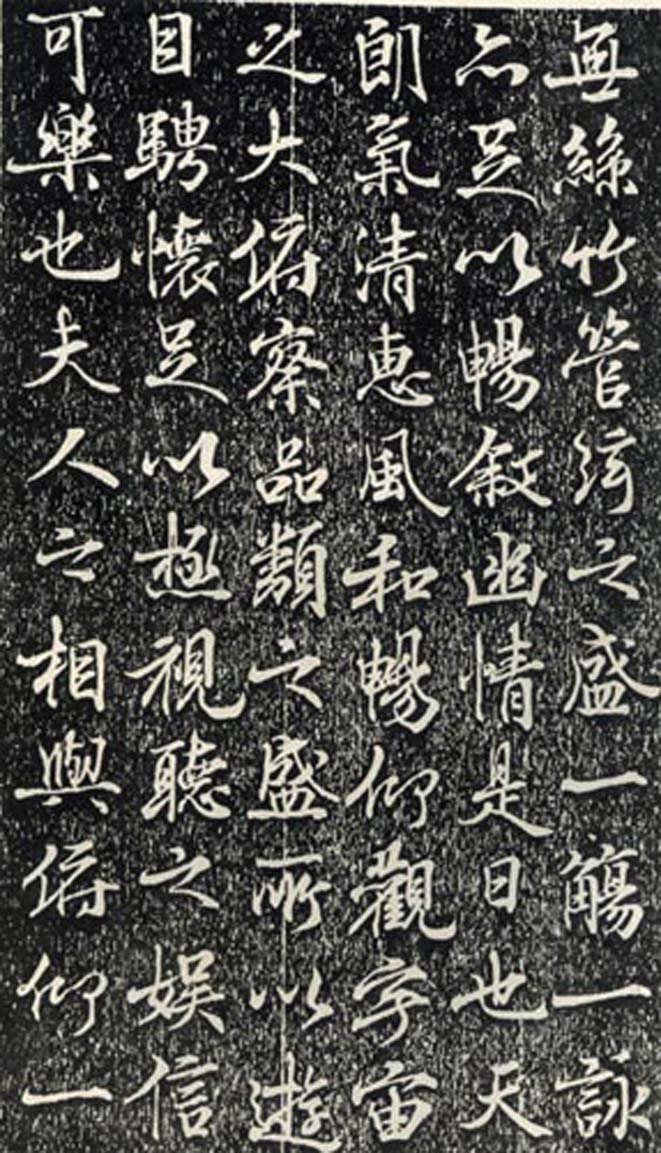 無絲竹管絃之盛一觴一詠
亦足以暢敘幽情是日也天
朗氣清惠風和暢仰觀宇宙
之大俯察品類之盛所以遊
目騁懷足以極視聽之娛信
可樂也夫人之相與俯仰一